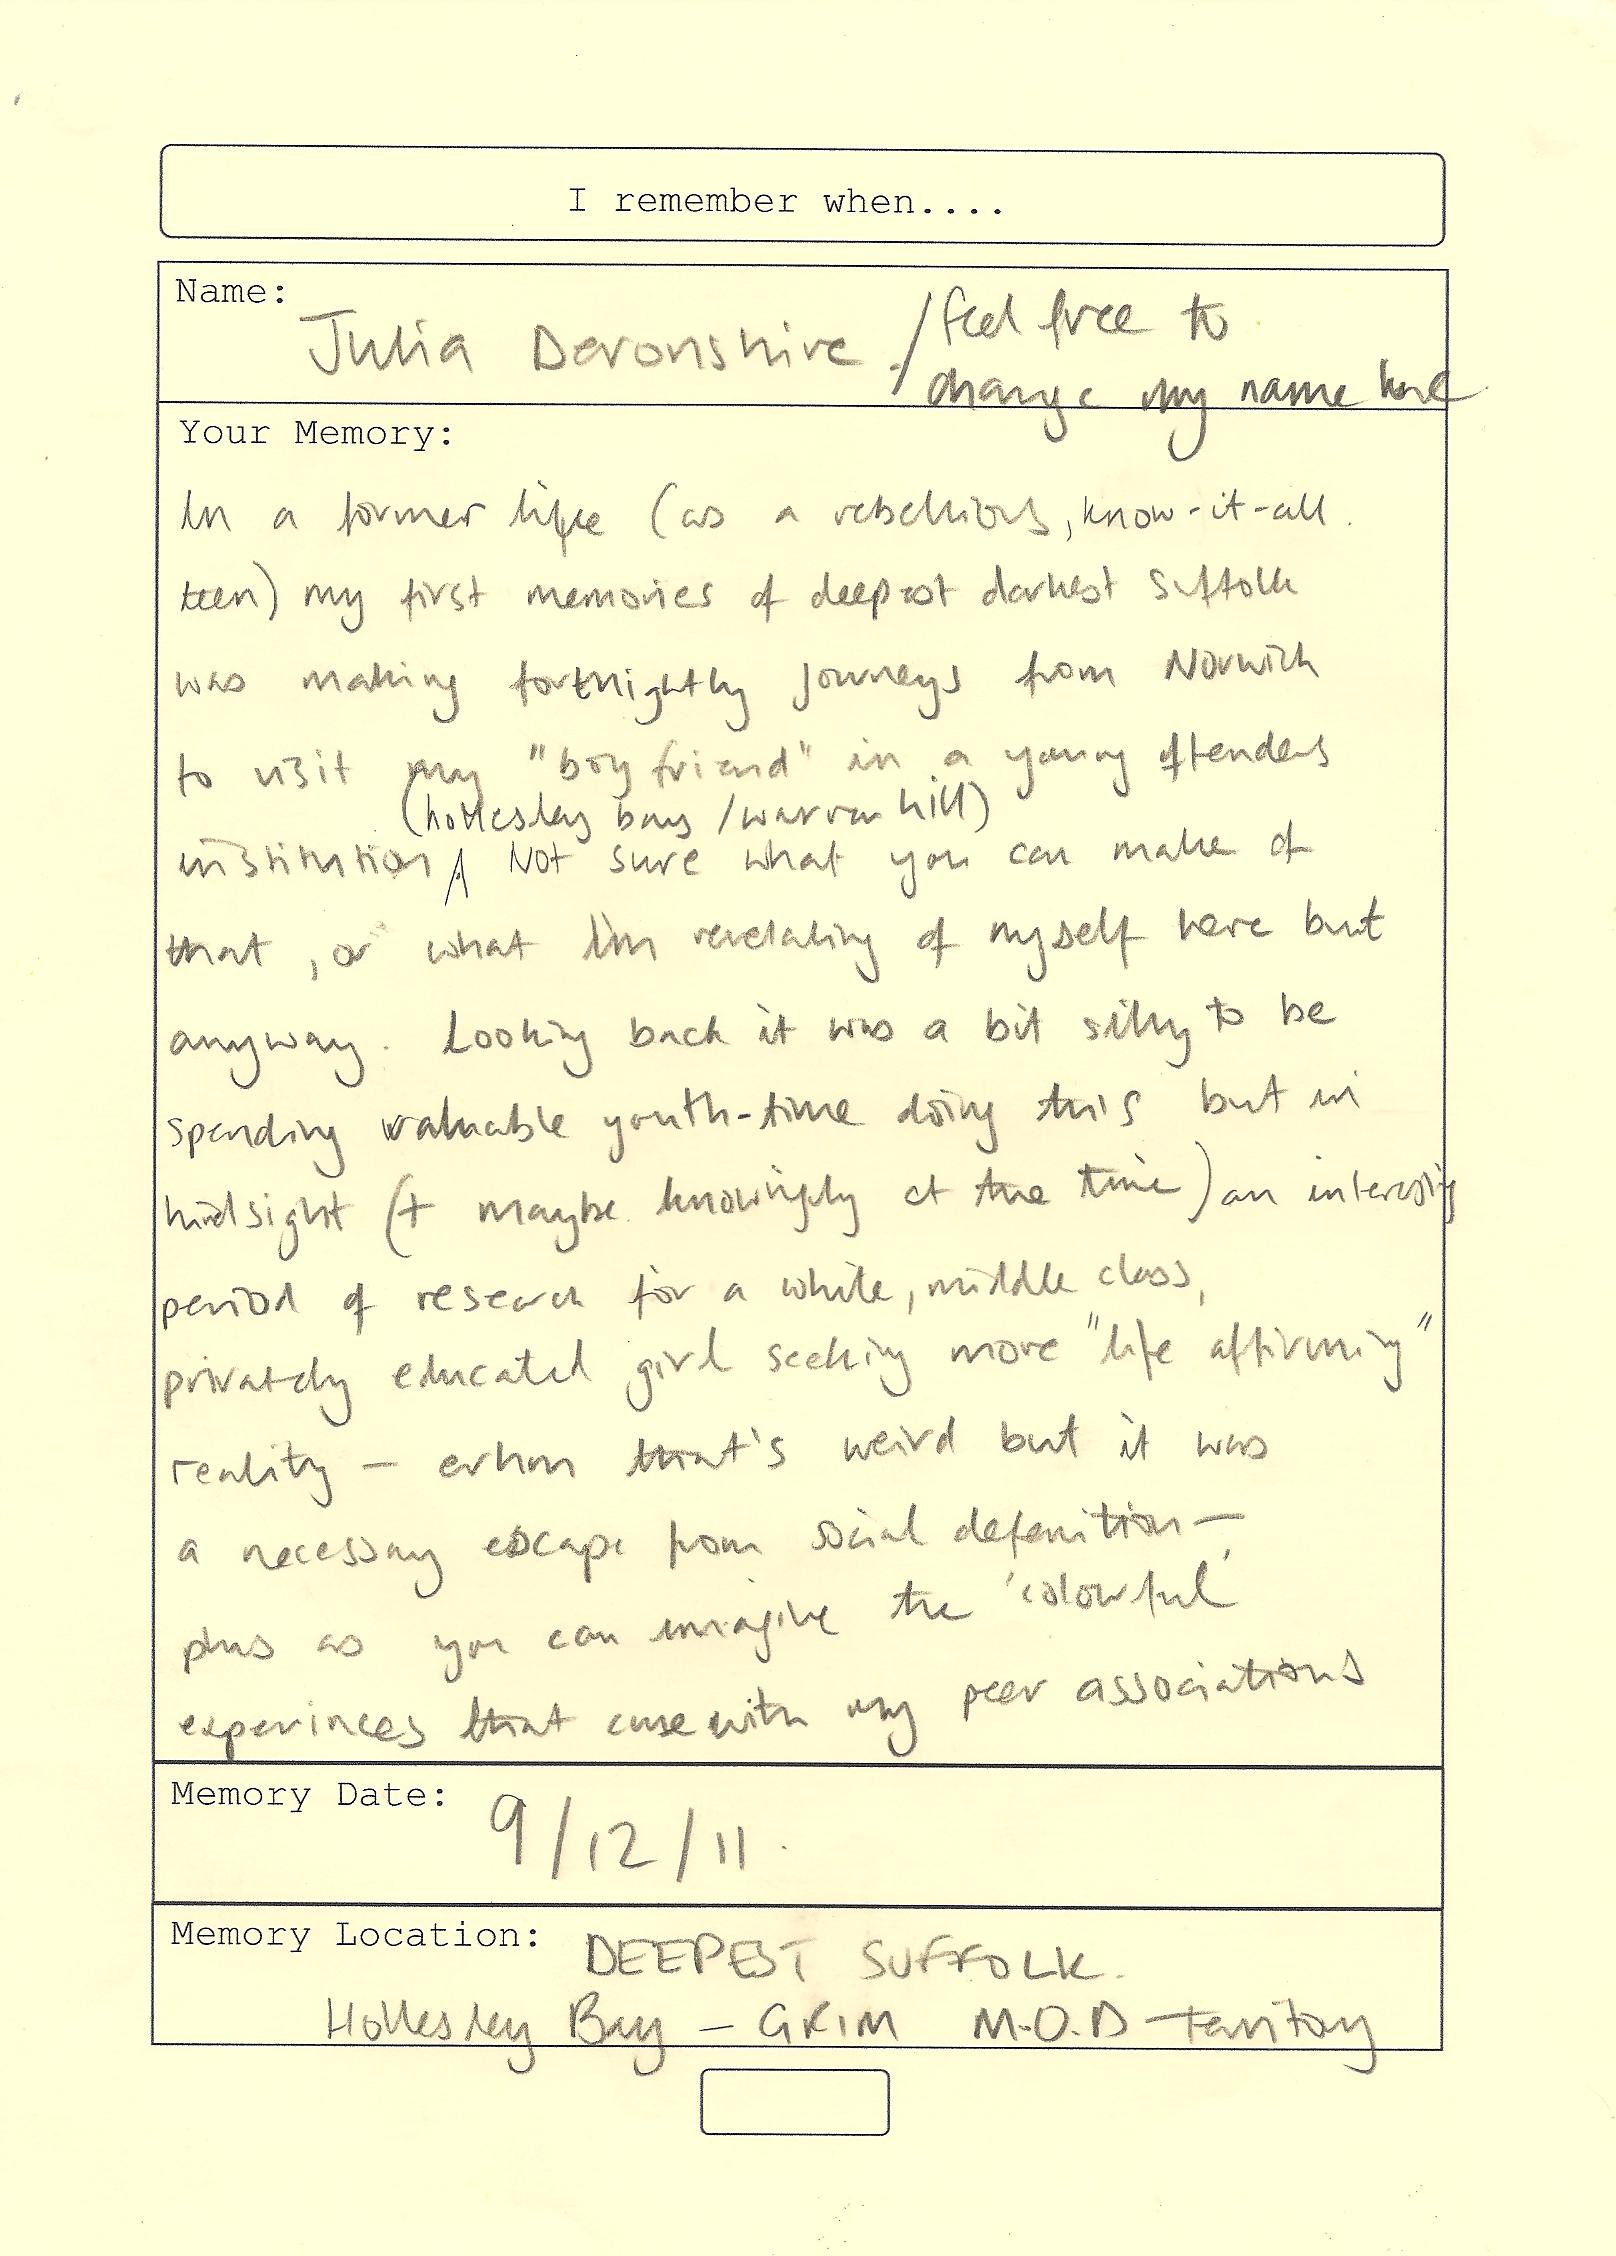 I remember when....
Name:
Julia Devonshire / feel free to
change my name here
Your Memory:
In a former life (as a rebellious, know-it-all
teen) my first memories of deepest darkest Suffolk
was making fortnightly journeys from Norwich
to visit my "boyfriend" in a young offenders
(hollesley bay / warren hill)
institution. Not sure what you can make of
that, or what I'm revelaling of myself here but
anyway. Looking back it was a bit silly to be
spending valuable youth-time doing this but in
hindsight (+ maybe knowingly at the time) an interesting
period of research for a white, middle class,
privately educated girl seeking more "life affirming"
reality – that's weird but it was
a necessary escape from social defenition –
plus as you can imagine the 'colourful'
experinces that came with my peer associations
Memory Date: 9/12/11.
Memory Location: DEEPEST SUFFOLK.
Hollesley Bay – GRIM M.O.D Territory